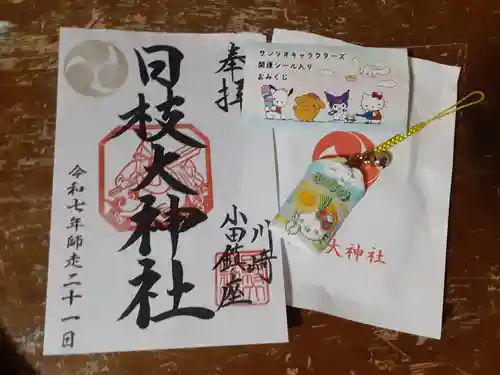 奉拝
日枝大神社
川崎
小田鎮座
令和七年師走二十一日
サンリオキャラクターズ
開運シール入り
おみくじ
大神社